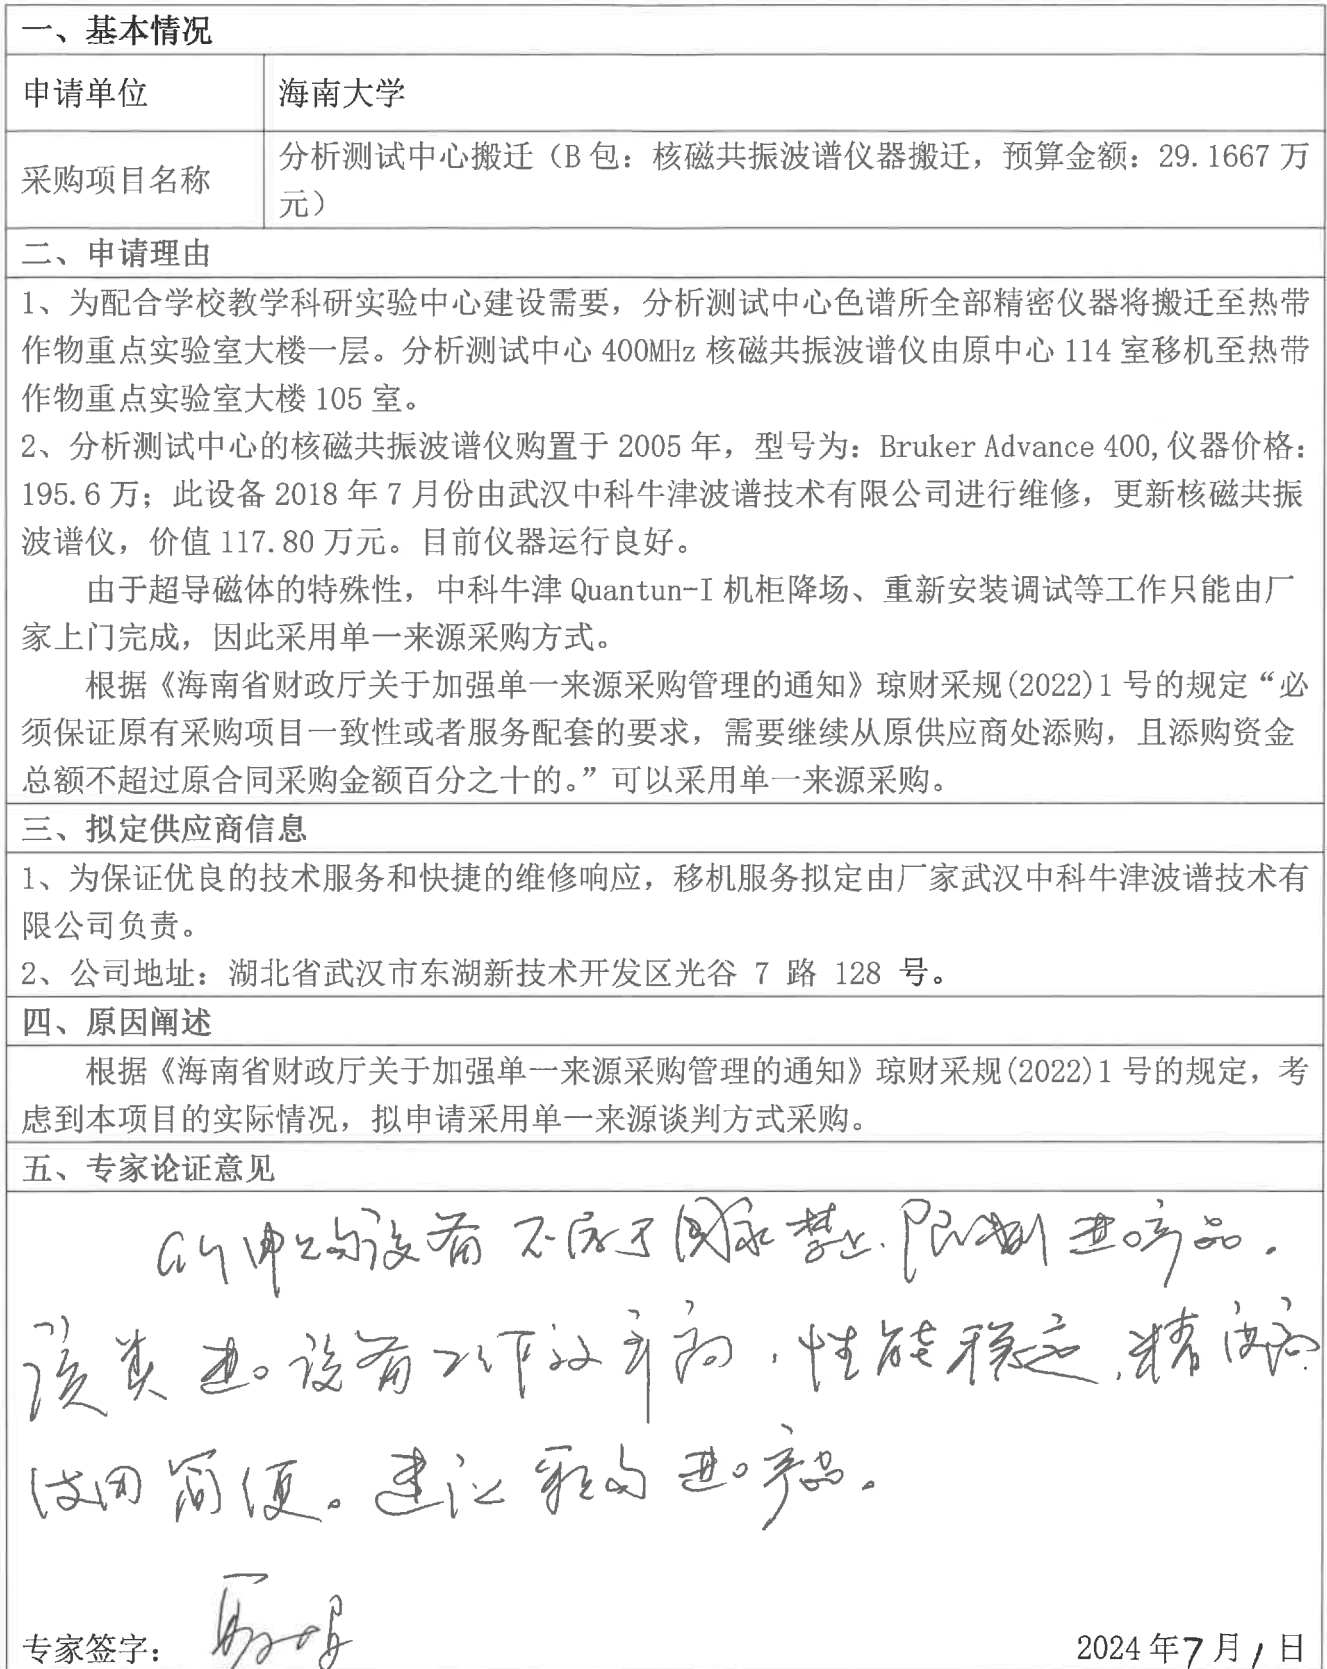 一、基本情况
申请单位
海南大学
采购项目名称
分析测试中心搬迁（B包：核磁共振波谱仪器搬迁，预算金额：29.1667万
元）
二、申请理由
1、为配合学校教学科研实验中心建设需要，分析测试中心色谱所全部精密仪器将搬迁至热带
作物重点实验室大楼一层。分析测试中心400MHz核磁共振波谱仪由原中心114室移机至热带
作物重点实验室大楼105室。
2、分析测试中心的核磁共振波谱仪购置于2005年，型号为：Bruker Advance 400,仪器价格：
195.6万；此设备2018年7月份由武汉中科牛津波谱技术有限公司进行维修，更新核磁共振
波谱仪，价值117.80万元。目前仪器运行良好。
由于超导磁体的特殊性，中科牛津Quantun-I机柜降场、重新安装调试等工作只能由厂
家上门完成，因此采用单一来源采购方式。
根据《海南省财政厅关于加强单一来源采购管理的通知》琼财采规(2022)1号的规定“必
须保证原有采购项目一致性或者服务配套的要求，需要继续从原供应商处添购，且添购资金
总额不超过原合同采购金额百分之十的。”可以采用单一来源采购。
三、拟定供应商信息
1、为保证优良的技术服务和快捷的维修响应，移机服务拟定由厂家武汉中科牛津波谱技术有
限公司负责。
2、公司地址：湖北省武汉市东湖新技术开发区光谷 7 路 128 号。
四、原因阐述
根据《海南省财政厅关于加强单一来源采购管理的通知》琼财采规(2022)1号的规定，考
虑到本项目的实际情况，拟申请采用单一来源谈判方式采购。
五、专家论证意见
所申购设备不属于国家禁止、限制进口产品。
该类进口设备工作效率高，性能稳定，精度高
使用简便。建议采购进口产品。
专家签字：
2024年7月1日